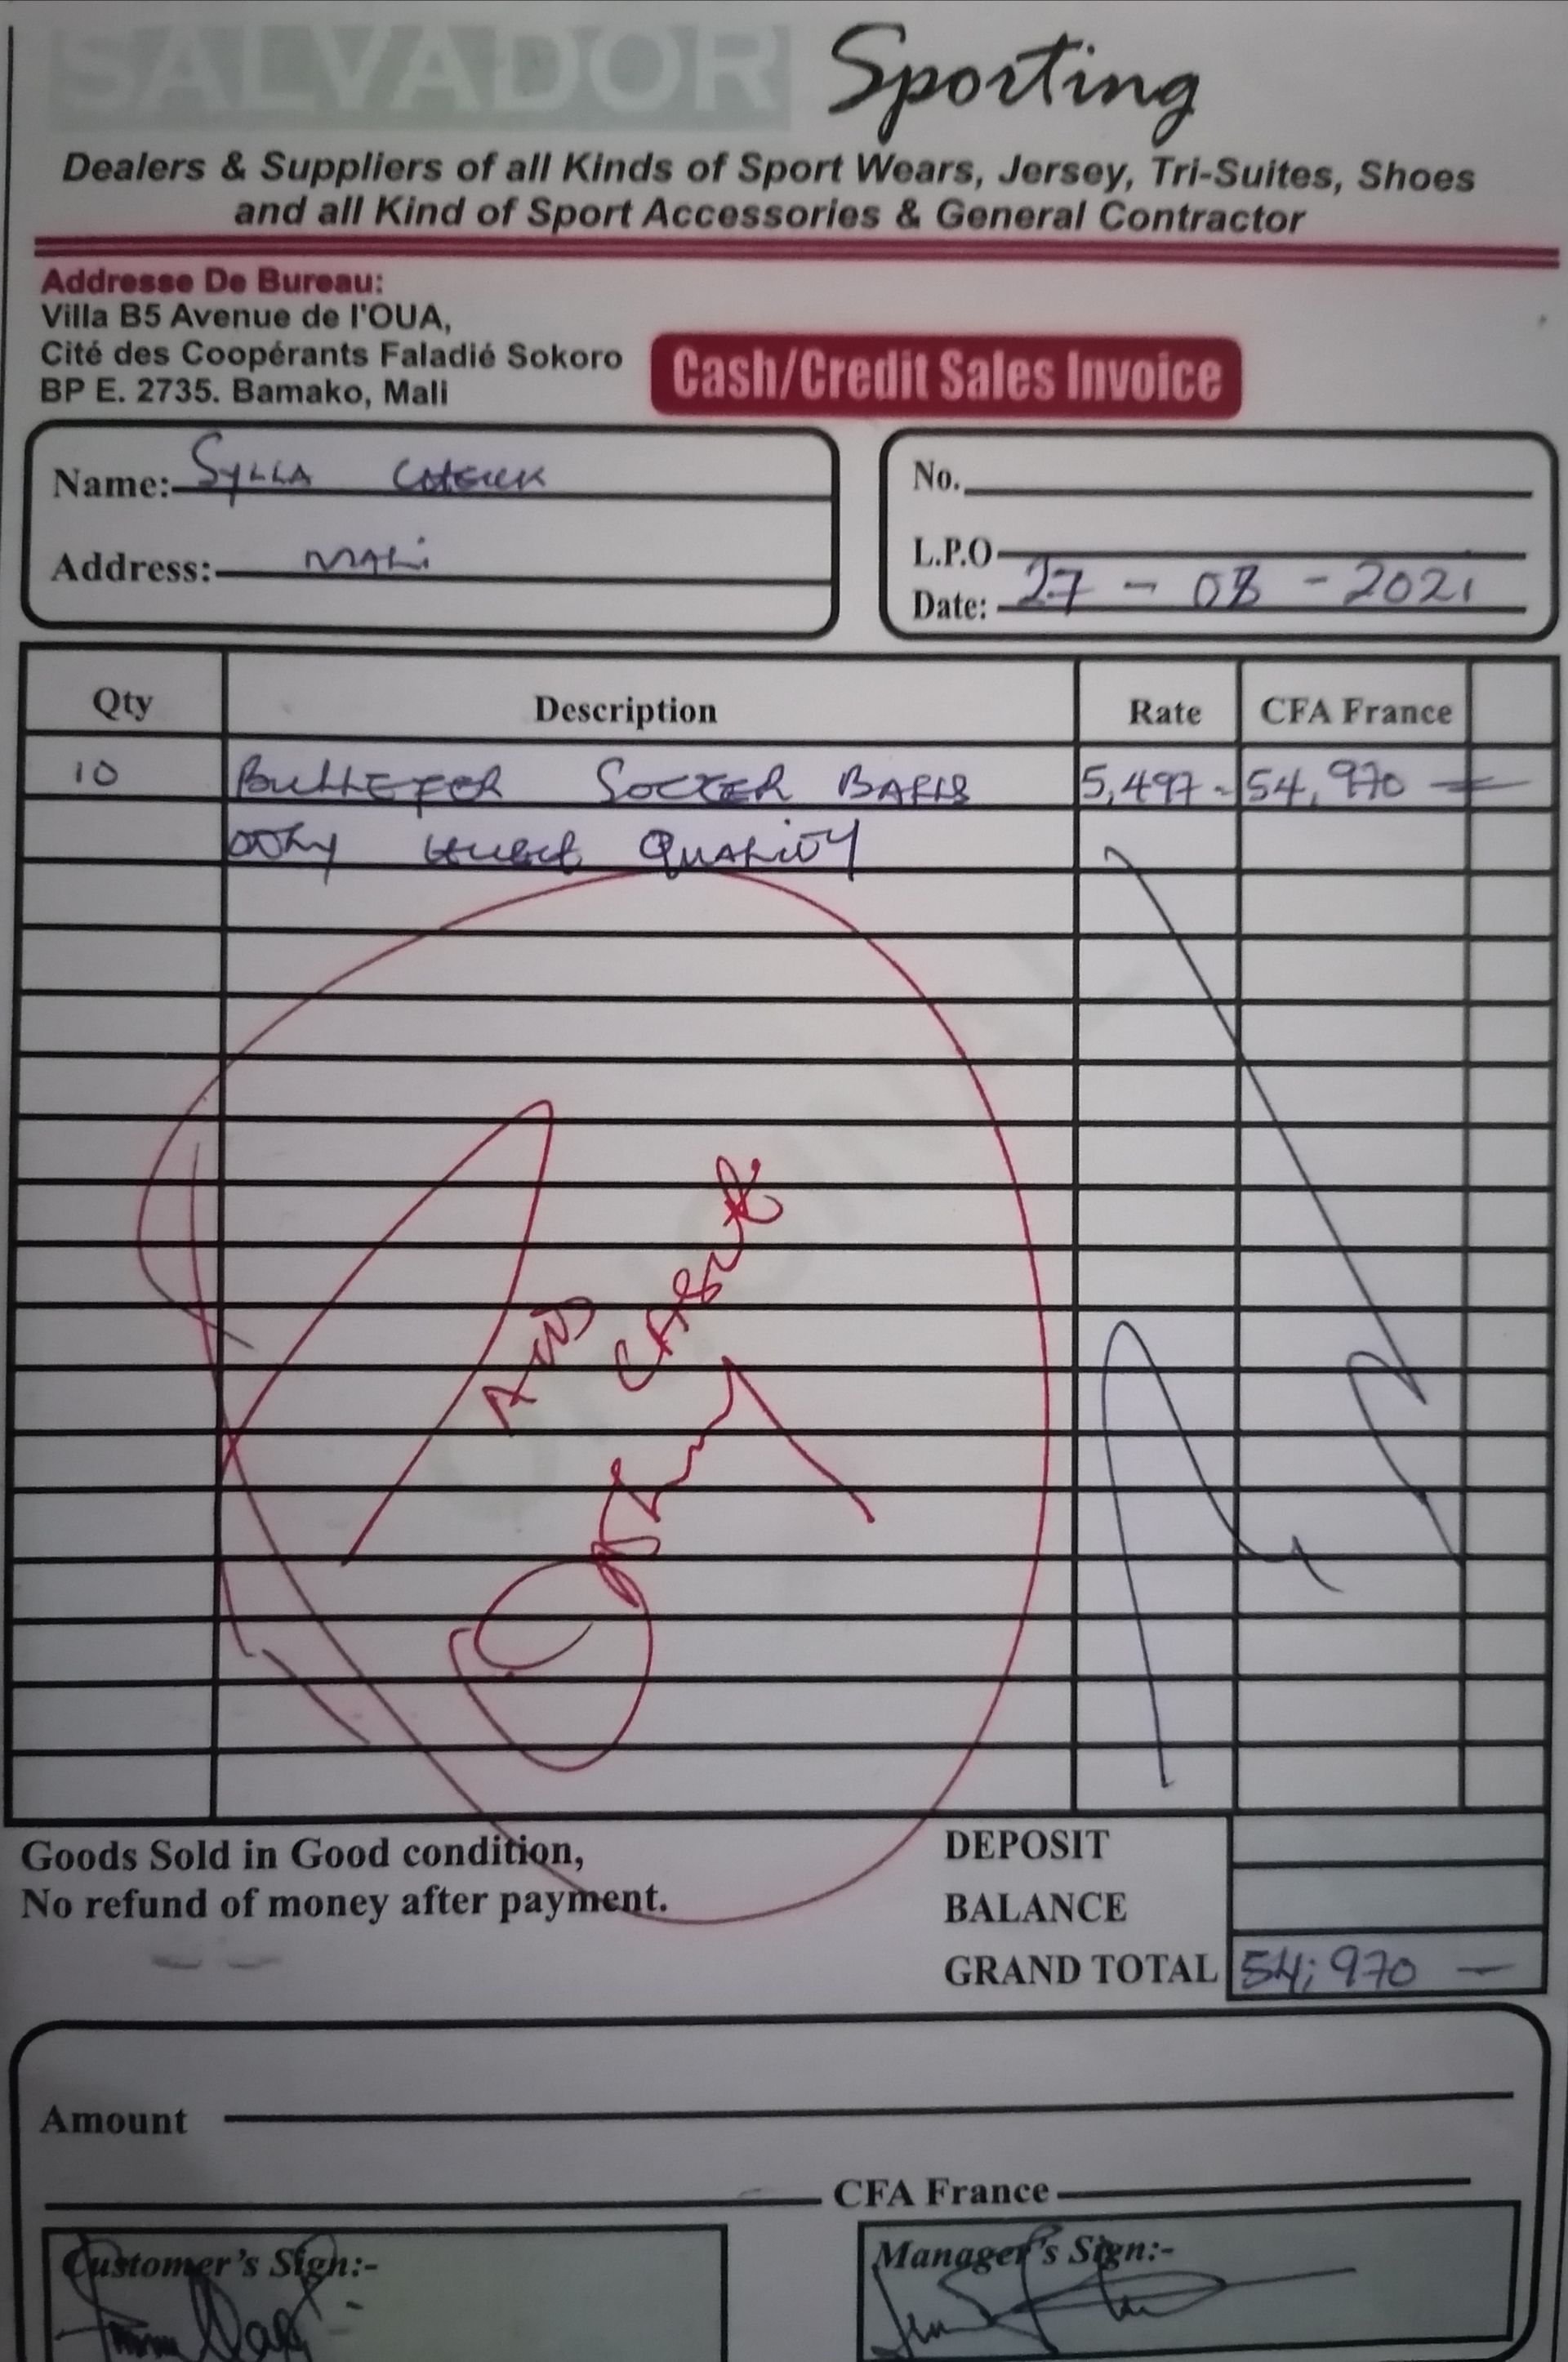 SALVADOR Sporting
Dealers & Suppliers of all Kinds of Sport Wears, Jersey, Tri-Suites, Shoes
and all Kind of Sport Accessories & General Contractor
Addresse De Bureau:
Villa B5 Avenue de l'OUA,
Cité des Coopérants Faladié Sokoro
BP E. 2735. Bamako, Mali
Cash/Credit Sales Invoice
Name: SYLLA CHEICK
Address: MALi
No.
L.P.O
Date: 27 - 08 - 2021
Qty Description Rate CFA France
10 SOCCER BALLS 5,497 - 54,970
QUALiTY
AND
Goods Sold in Good condition,
No refund of money after payment.
DEPOSIT
BALANCE
GRAND TOTAL 54,970 —
Amount
CFA France
Customer's Sign:-
Manager's Sign:-